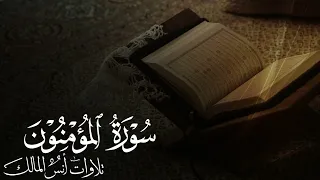 سُورَةُ ٱلْمُؤْمِنُونَ
تلاوات أنس المالك